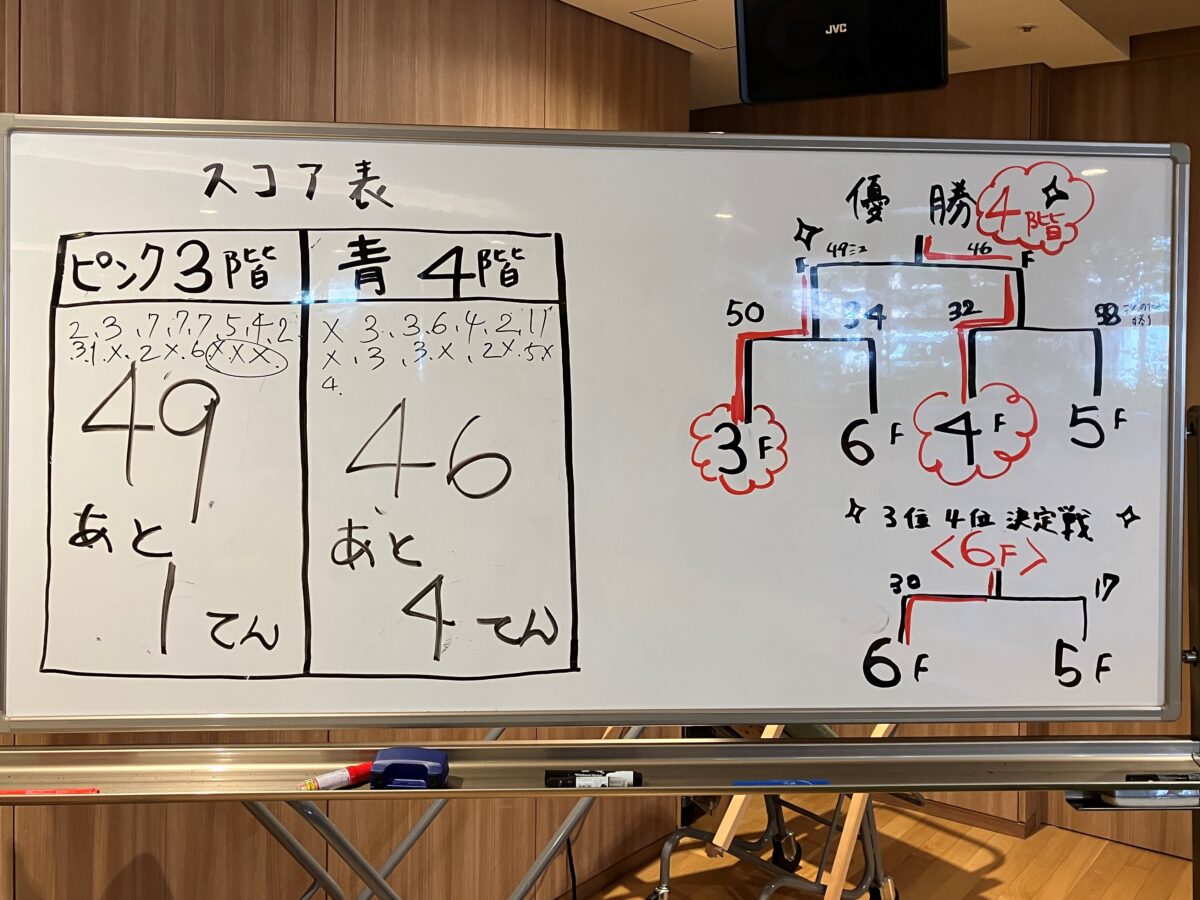 JVC
スコア表
ピンク3階
2.3.7.7.7.5.4.2
3.1.X.2X.6XXX
49
あと
1てん
青 4階
X 3.3.6.4.2.11
X.3.3.X.2X.5X
4.
46
あと
4てん
優勝 4階
49ミス 46
F F
50 34 32
3F 6F 4F 5F
3位4位決定戦
<6F>
30 17
6F 5F